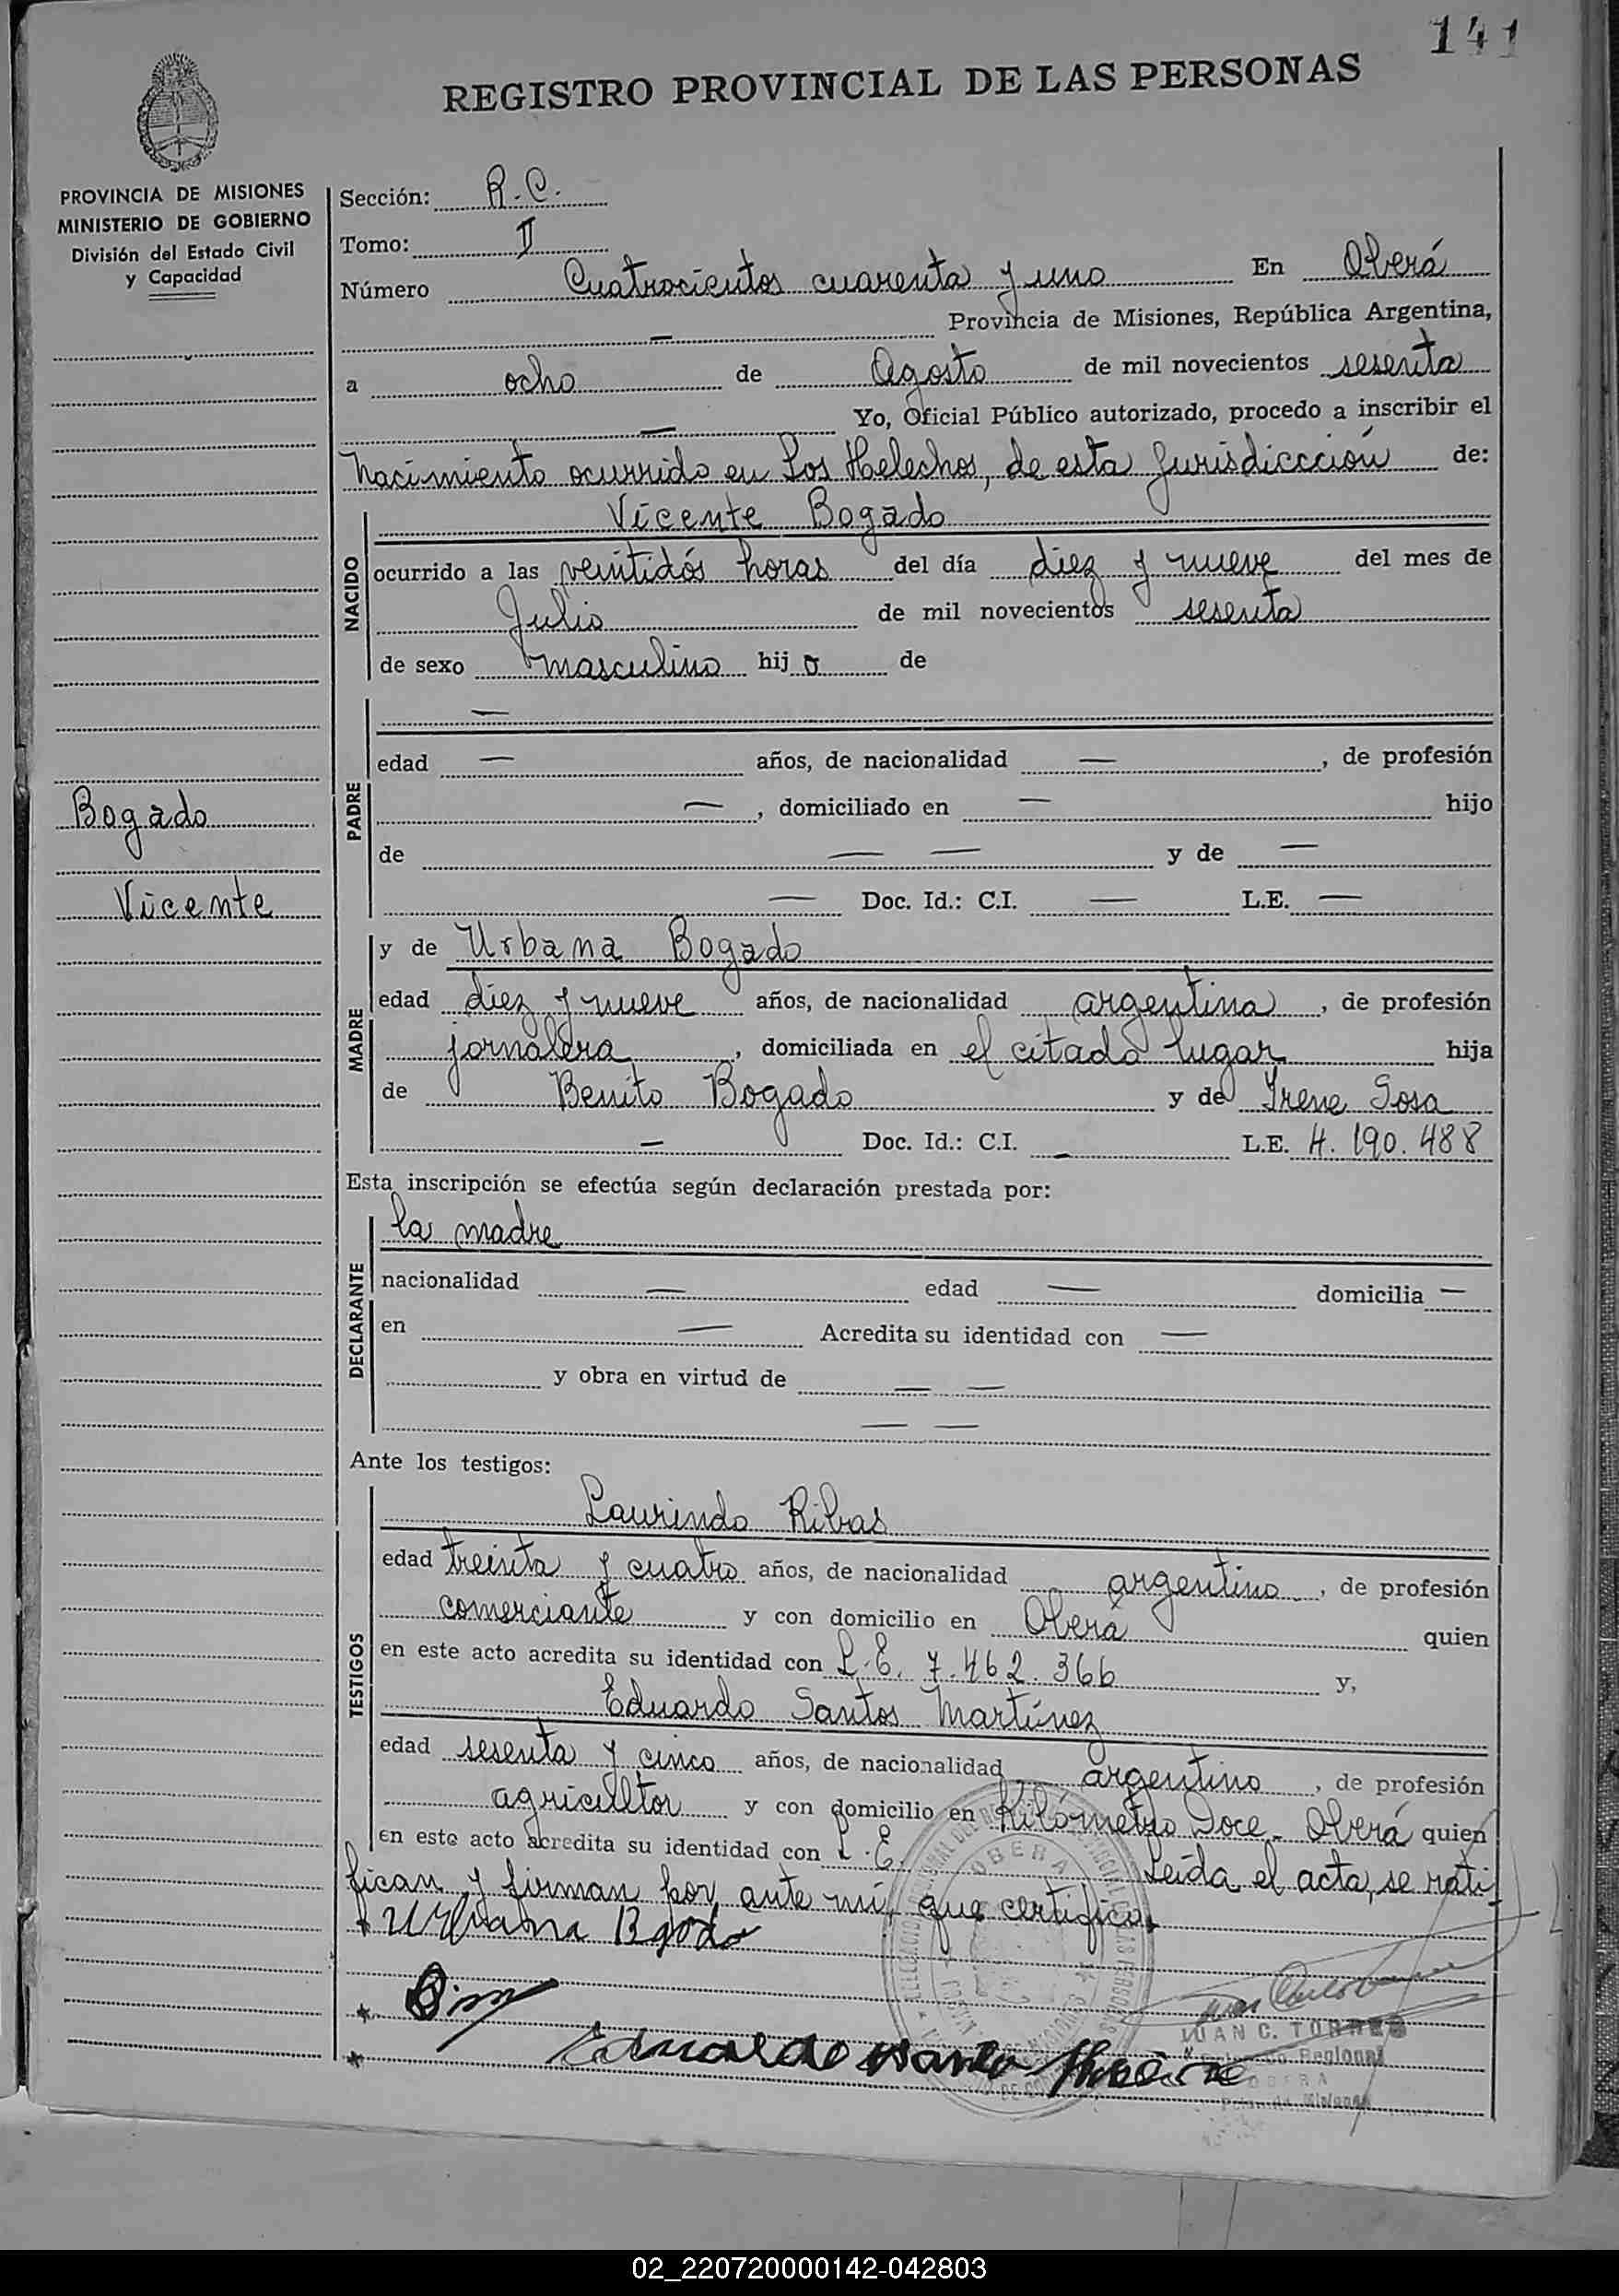 141
REGISTRO PROVINCIAL DE LAS PERSONAS
PROVINCIA DE MISIONES
MINISTERIO DE GOBIERNO
División del Estado Civil
y Capacidad
Sección: R.C.
Tomo: II
Número Cuatrocientos cuarenta y uno En Oberá
— Provincia de Misiones, República Argentina,
a ocho de Agosto de mil novecientos sesenta
— Yo, Oficial Público autorizado, procedo a inscribir el
Nacimiento ocurrido en Los Helechos, de esta Jurisdiccción de:
NACIDO
Vicente Bogado
ocurrido a las veintidós horas del día diez y nueve del mes de
Julio de mil novecientos sesenta
de sexo masculino hijo de
PADRE
—
edad — años, de nacionalidad — , de profesión
— , domiciliado en — hijo
de — — y de —
— Doc. Id.: C.I. — L.E. —
Bogado
Vicente
MADRE
y de Urbana Bogado
edad diez y nueve años, de nacionalidad argentina , de profesión
jornalera , domiciliada en el citado lugar hija
de Benito Bogado y de Irene Sosa
— Doc. Id.: C.I. — L.E. 4.190.488
Esta inscripción se efectúa según declaración prestada por:
DECLARANTE
la madre
nacionalidad — edad — domicilia —
en — Acredita su identidad con —
y obra en virtud de — —
— —
Ante los testigos:
TESTIGOS
Laurindo Ribas
edad treinta y cuatro años, de nacionalidad argentino , de profesión
comerciante y con domicilio en Oberá quien
en este acto acredita su identidad con L.E. 7.462.366 y,
Eduardo Santos Martínez
edad sesenta y cinco años, de nacionalidad argentino , de profesión
agricultor y con domicilio en Kilómetro Doce - Oberá quien
en este acto acredita su identidad con L.E. Leída el acta, se rati
fican y firman por ante mí, que certifico.
Urbana Bgodo
OBERA
JUAN C. TORRES
Regional
OBERA
02_220720000142-042803